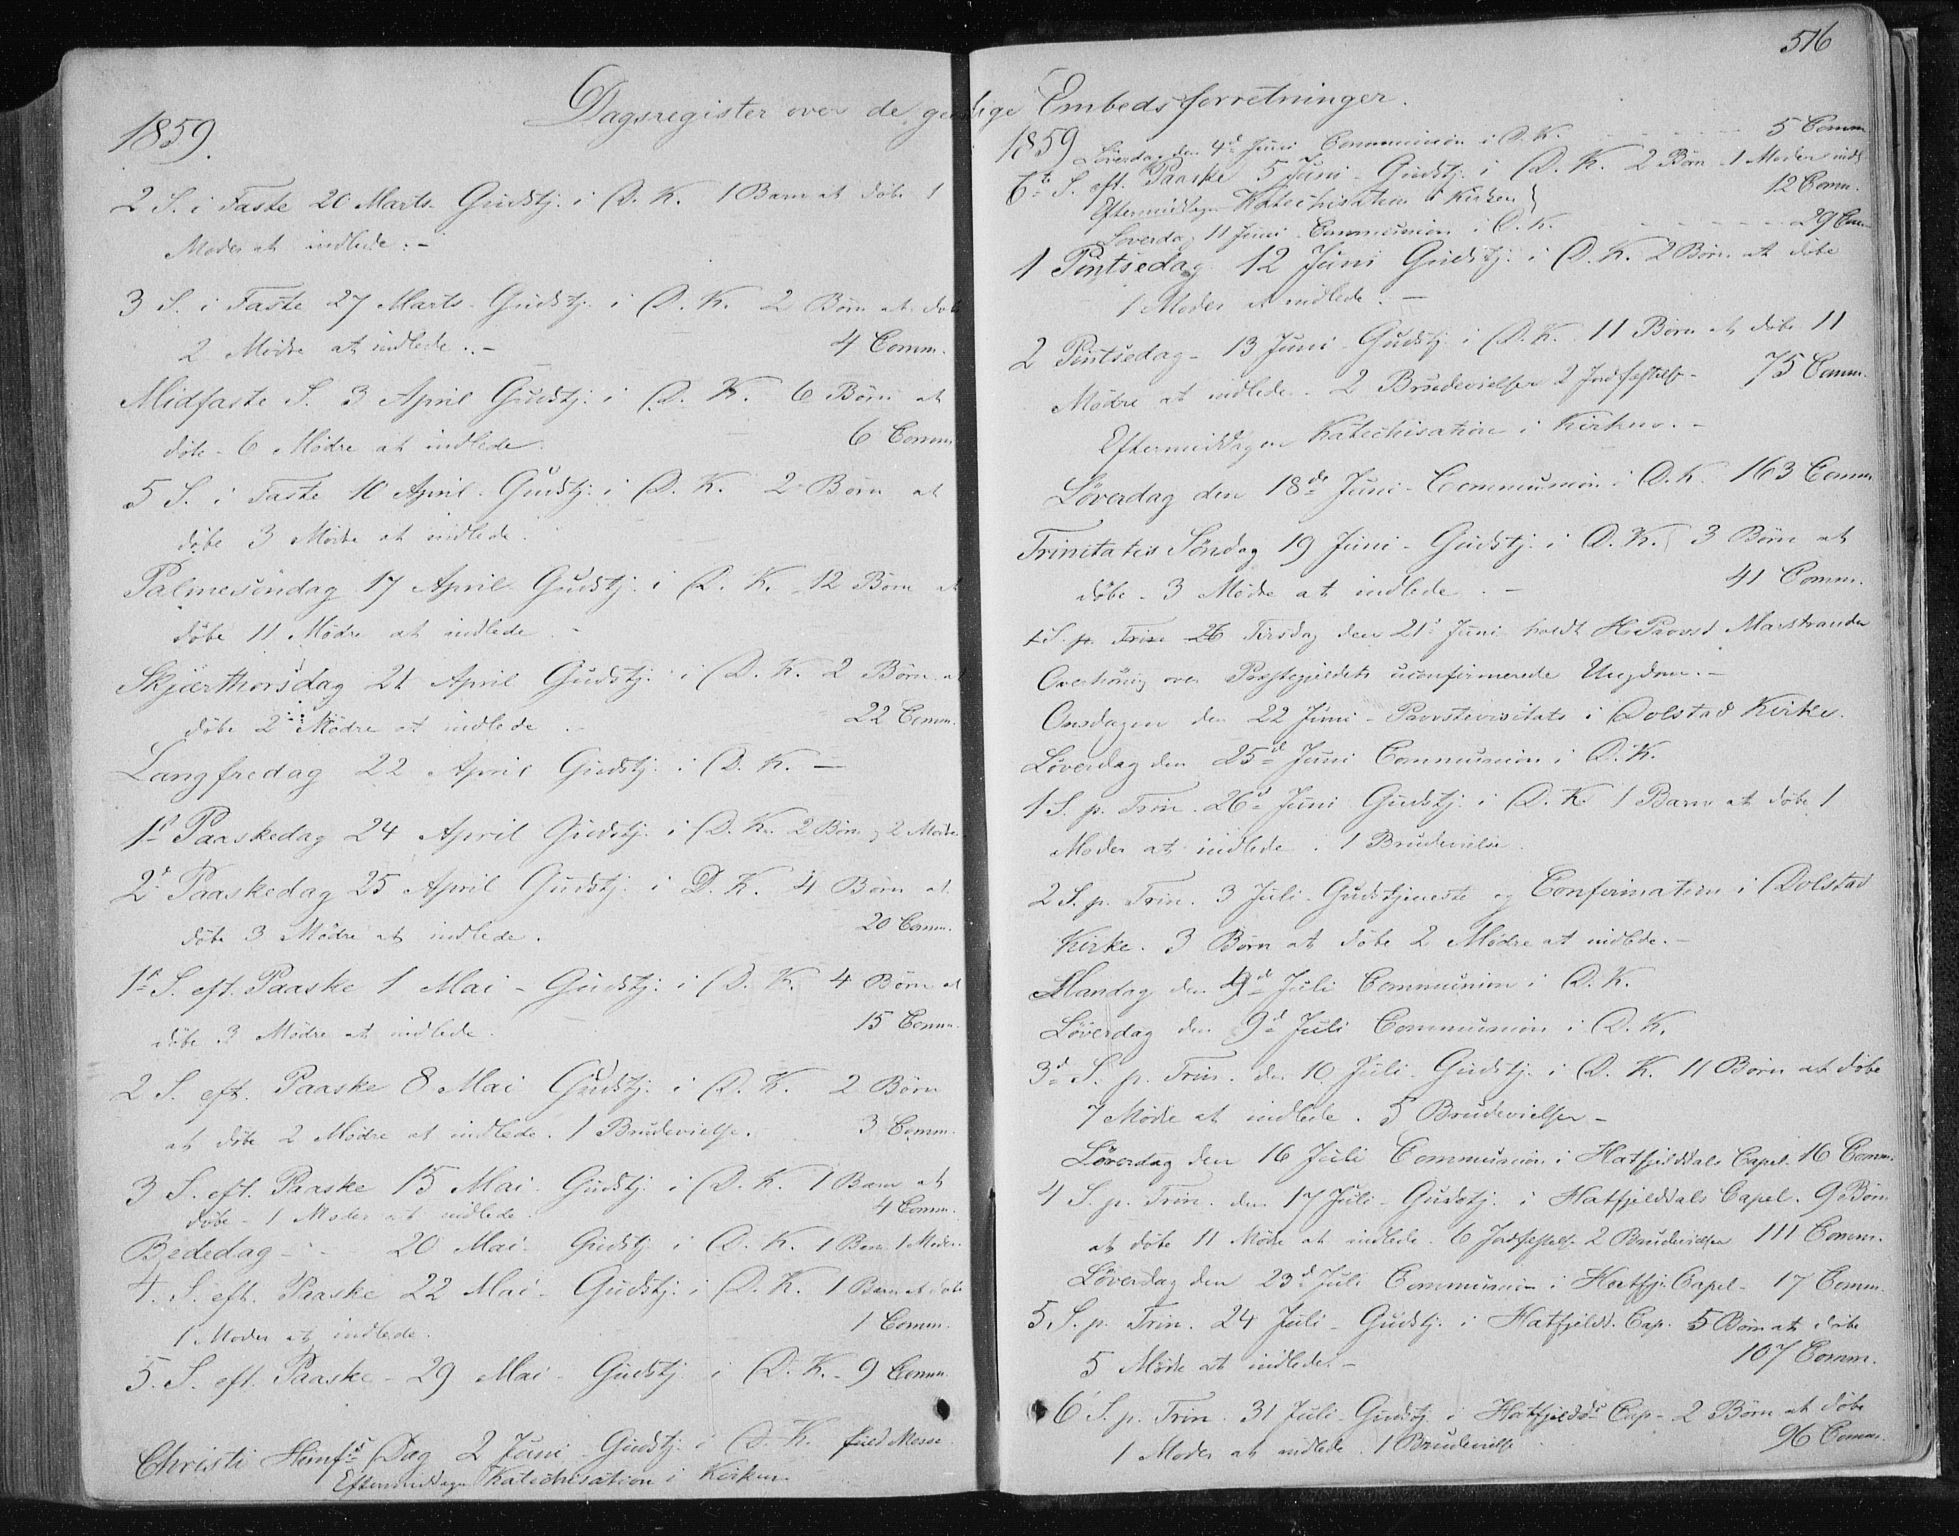 516
Dagsregister over de geistlige Embedsforretninger.
1859.
2 S. i Faste 20 Marts Gudstj. i D. K. 1 Barn at døbe 1
Moder at indlede. -
3 S. i Faste 27 Marts - Gudstj. i D. K. 2 Børn at døbe
2 Mødre at indlede. - 4 Comm.
Midfaste S. 3 April Gudstj. i D. K. 6 Børn at
døbe - 6 Mødre at indlede. 6 Comm.
5 S. i Faste 10 April - Gudstj. i D. K. 2 Børn at
døbe 3 Mødre at indlede.
Palmesøndag 17 April Gudstj. i D. K. 12 Børn at
døbe 11 Mødre at indlede. -
Skjærthorsdag 21 April Gudstj. i D. K. 2 Børn at
døbe 2 Mødre at indlede. - 22 Comm.
Langfredag 22 April Gudstj. i D. K. —
1st Paaskedag 24 April Gudstj. i D. K. 2 Børn, 2 Mødre
2d Paaskedag 25 April Gudstj. i D. K. 4 Børn at
døbe 3 Mødre at indlede. 20 Comm.
1st S. eft. Paaske 1 Mai - Gudstj. i D. K. 4 Børn at
døbe 3 Mødre at indlede. 15 Comm.
2 S. eft. Paaske 8 Mai Gudstj. i D. K. 2 Børn
at døbe 2 Mødre at indlede. 1 Brudevielse. 3 Comm.
3 S. eft. Paaske 15 Mai - Gudstj. i D. K. 1 Barn at
døbe - 1 Moder at indlede. 4 Comm.
Bededag - 20 Mai - Gudstj. i D. K. 1 Barn 1 Moder.
4. S. eft. Paaske 22 Mai - Gudstj. i D. K. 1 Barn at døbe
1 Moder at indlede. 1 Comm.
5. S. eft. Paaske - 29 Mai - Gudstj. i D. K. - 9 Comm.
Christi Himfs Dag 2 Juni - Gudstj. i D. K. Messe
Eftermiddagen Katechisation i Kirken.
1859
Løverdag den 4d Juni Communion i D. K. 5 Comm
6te S. eft. Paaske 5 Juni - Gudstj. i D. K. 2 Børn - 1 Moder indl.
Eftermiddagen Katechisation i Kirken 12 Comm.
Løverdag 11 Juni - Communion i D. K. 29 Com
1 Pintsedag 12 Juni Gudstj. i D. K. 2 Børn at døbe
1 Moder at indlede. —
2 Pintsedag - 13 Juni - Gudstj. i D. K. 11 Børn at døbe 11
Mødre at indlede. 2 Brudevielser 2 Jordfæstelse - 75 Comm.
Eftermiddagen Katechisation i Kirken. -
Løverdag den 18de Juni - Communion i D. K. 163 Comm
Trinitatis Søndag 19 Juni - Gudstj. i D. K. 3 Børn at
døbe - 3 Mødre at indlede. - 41 Comm.
1 S. p. Trin 26 Tirsdag den 21d Juni holdt Hr Provst Marstrander
Overhøring over Præstegjeldets uconfirmerede Ungdom. -
Onsdagen den 22 Juni - Provstevisitats i Dolstad Kirke.
Løverdag den 25d Juni Communion i D. K.
1 S. p. Trin. 26d Juni Gudstj. i D. K. 1 Barn at døbe 1
Moder at indlede. 1 Brudevielse.
2 S. p. Trin. 3 Juli - Gudstjeneste og Confirmation i Dolstad
Kirke. 3 Børn at døbe 2 Mødre at indlede. -
Mandag den 4d Juli Communion i D. K.
Løverdag den 9d Juli Communion i D. K.
3d S. p. Trin. den 10 Juli - Gudstj. i D. K. 11 Børn at døbe
7 Mødre at indlede. 5 Brudevielser -
Løverdag den 16 Juli Communion i Hatfjelddals Capel. 16 Comm.
4 S. p. Trin. den 17 Juli - Gudstj. i Hatfjelddals Capel. 9 Børn
at døbe 11 Mødre at indlede. 6 Jordfæstelse 2 Brudevielser 111 Comm.
Løverdag den 23d Juli Communion i Hatfj. Capel - 17 Comm.
5 S. p. Trin. 24 Juli - Gudstj. i Hatfjeldd. Cap. 5 Børn at døbe
5 Mødre at indlede. - 107 Comm.
6 S. p. Trin. 31 Juli - Gudstj. i Hatfjeldds Cap - 2 Børn at døbe
1 Moder at indlede. 1 Brudevielse 96 Comm.